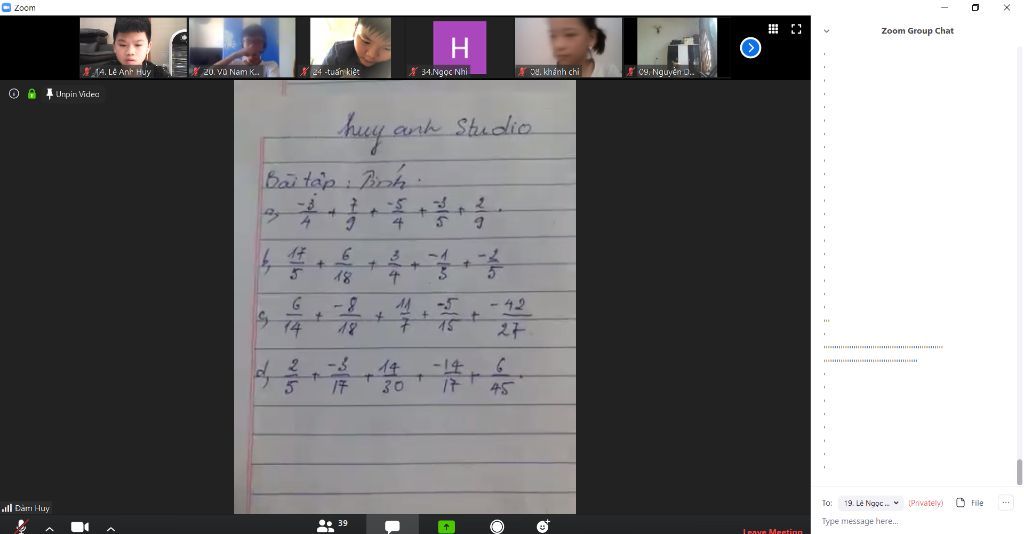 Zoom
14. Lê Anh Huy
20. Vũ Nam K...
24 -tuấn kiệt
H
34.Ngọc Nhi
08. khánh chi
09. Nguyễn D...
Zoom Group Chat
Unpin Video
huy anh Studio
Bài tập : Tính.
a, -3/4 + 7/9 + -5/4 + -3/5 + 2/9.
b, 17/5 + 6/18 + 3/4 + -1/3 + -2/5
c, 6/14 + -8/18 + 11/7 + -5/15 + -42/27
d, 2/5 + -3/17 + 14/30 + -14/17 + 6/45.
Đàm Huy
39
Leave Meeting
To: 19. Lê Ngọc ... (Privately) File ...
Type message here...